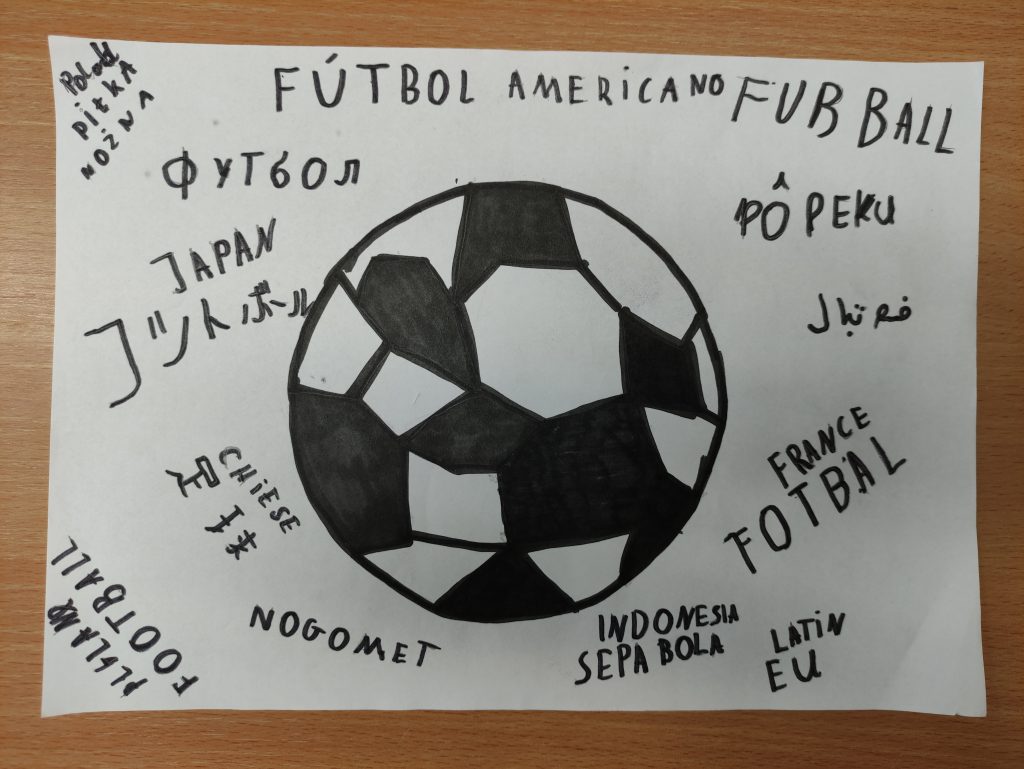 PIŁKA
NOŻNA
FÚTBOL AMERICANO
FUBBALL
ФУТБОЛ
PÔ PEKU
JAPAN
フットボール
فوتبال
CHIESE
足球
FRANCE
FOTBAL
FOOTBALL
NOGOMET
INDONESIA
SEPA BOLA
LATIN
EU